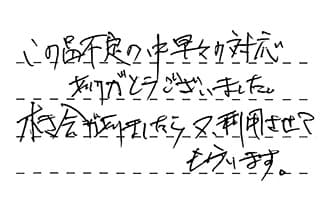 この品不足の中早々の対応
ありがとうございました。
機会がありましたら又、利用させて
もらいます。